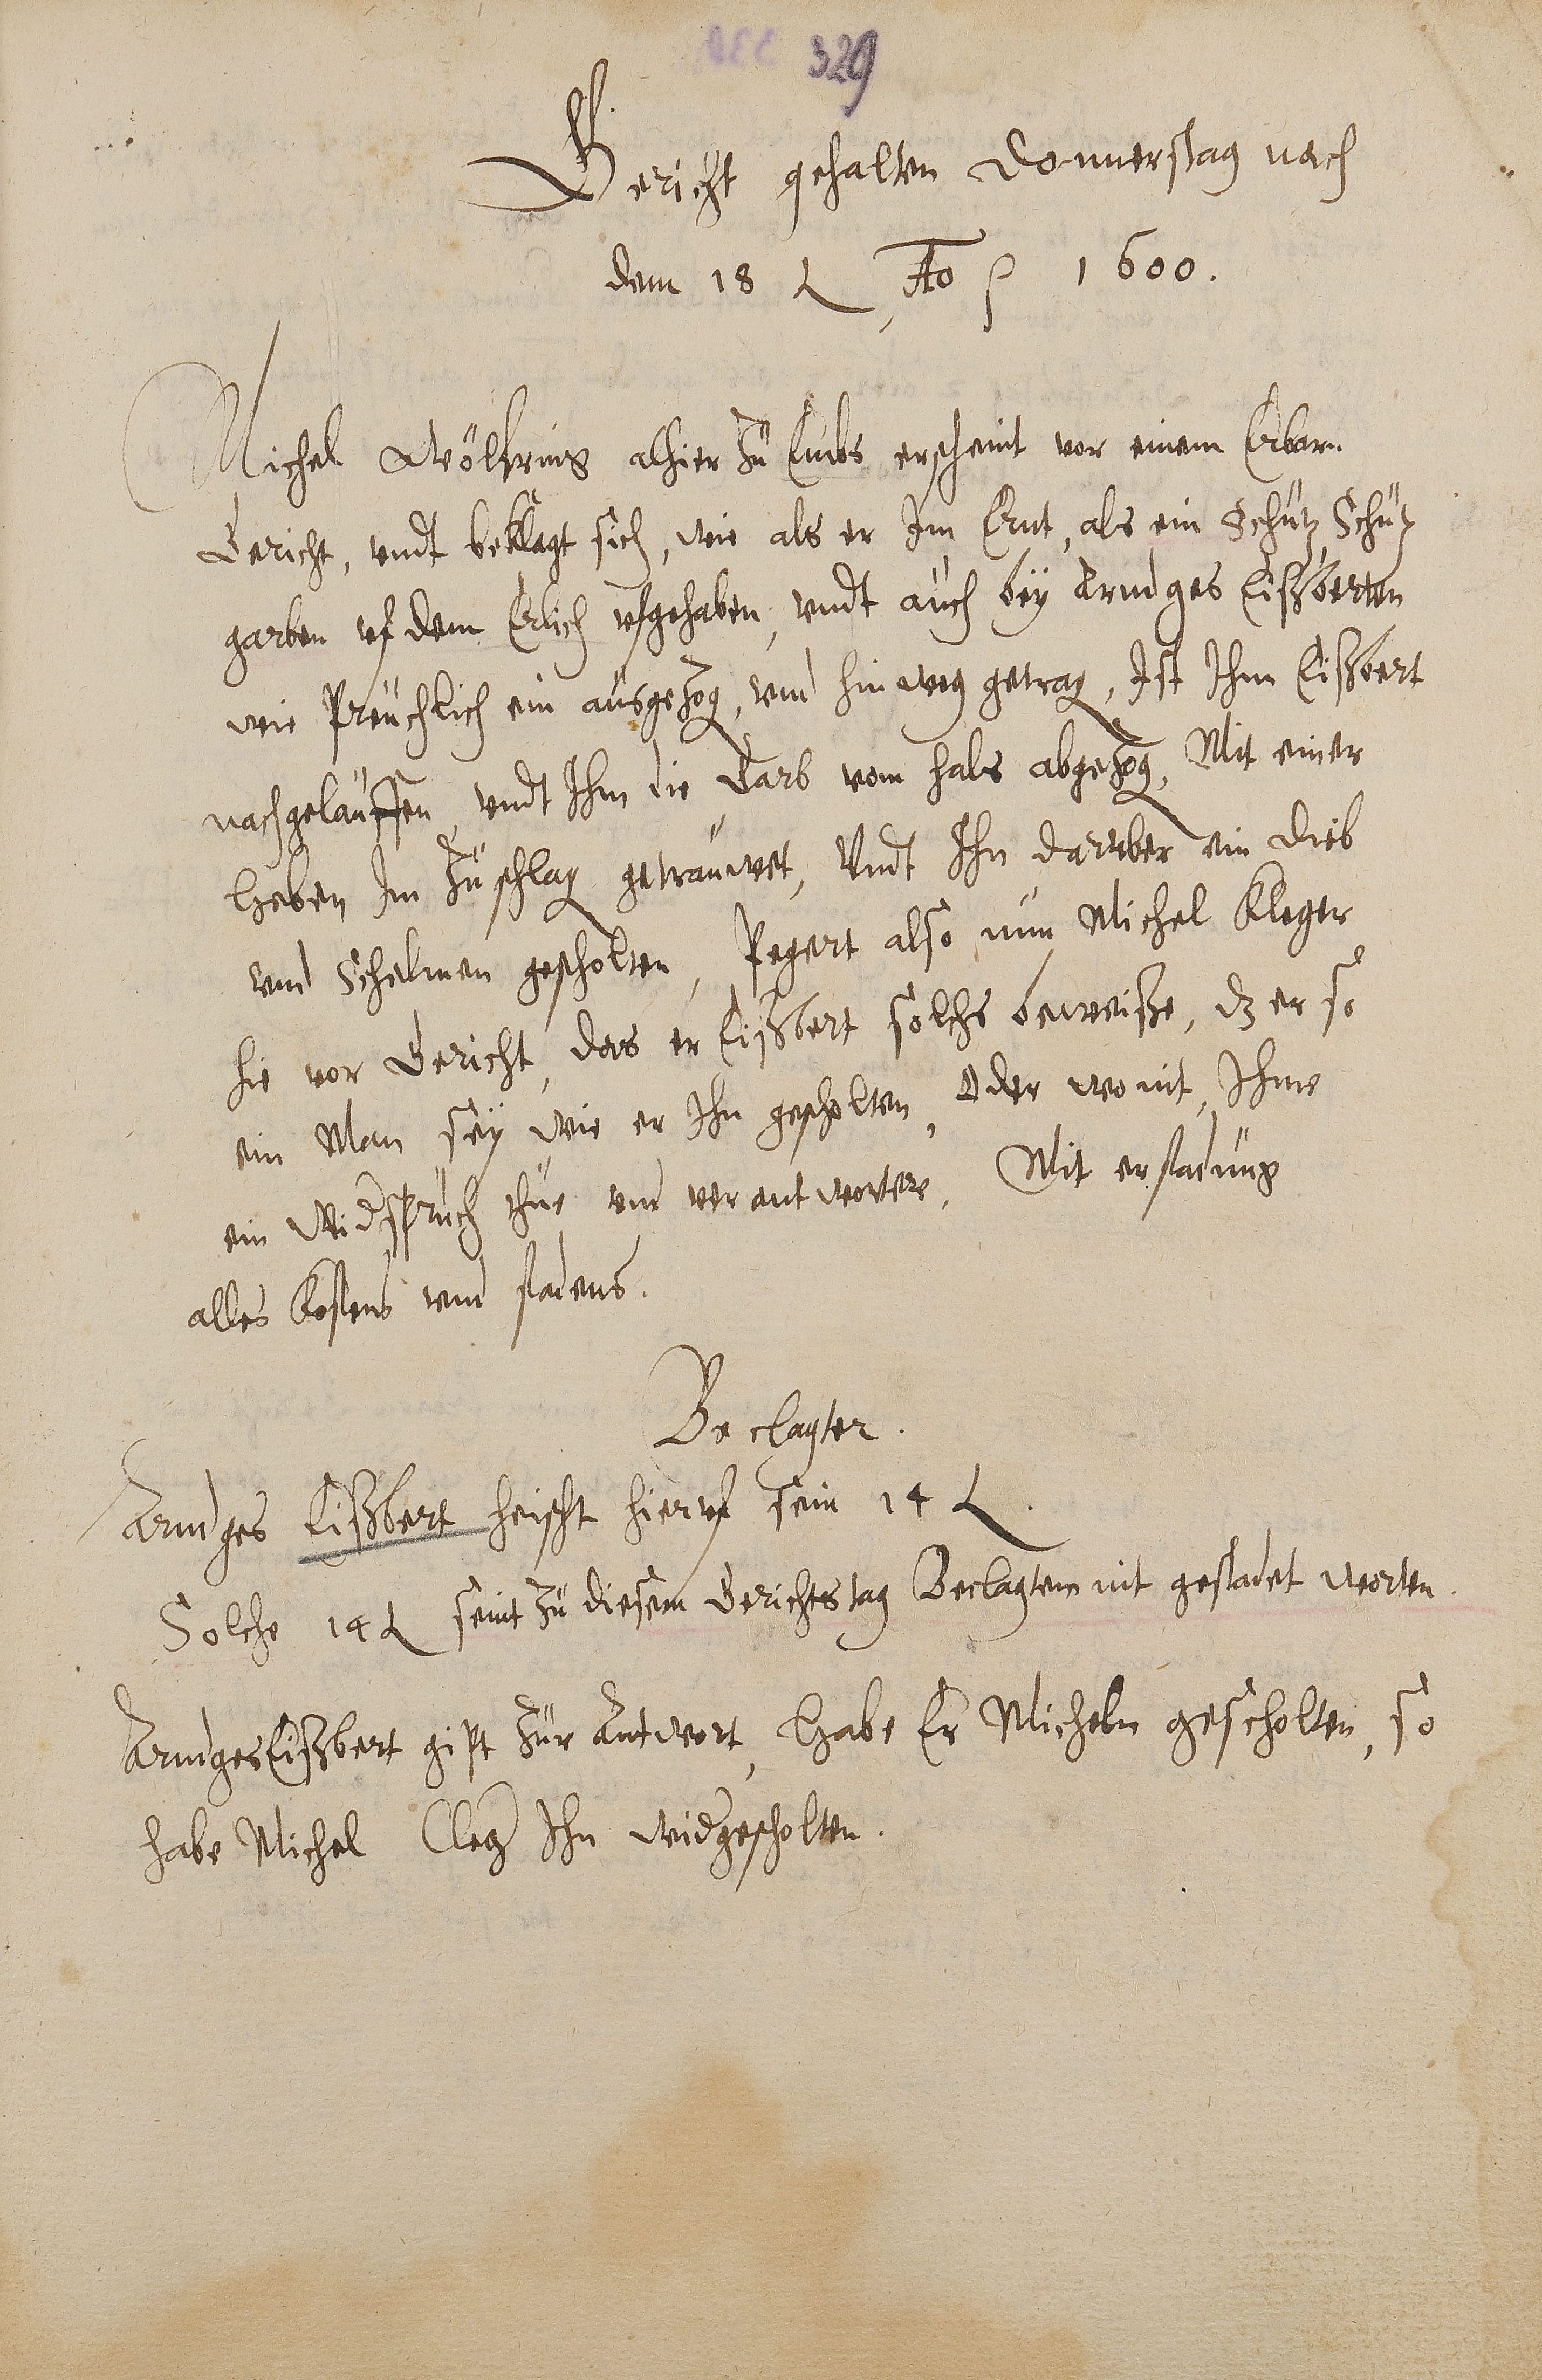 329
Gericht gehalten Donnerstag nach
dem 18 t Ao p 1600.
Michel Wölfring alhier zu Cubs erscheint vor einem Erbarn
Gericht, undt beklagt sich, wie als er Im Ernt, als ein Schütz, Schütz
garben uf dem Erlich ufgehaben, undt auch bey Arndges Lißberten
wie Preuchlich ein ausgezog, und hinweg getrag, Ist Ihm Lißbert
nachgelauffen undt Ihm die Garb vom hals abgezog, Mit einer
heben Im zuschlag getrauwet, Undt Ihn daruber ein Dieb
und Schelmen gescholten, Pegert also nun Michel Kleger
hie vor Gericht, das er Lißbert solchs beweiße, dz er so
ein Man sey wie er Ihn gescholten, Oder wo nit, Ihme
ein Widspruch thue und verantworte, Mit erstadung
alles Kostens und stadens.
Beclagter.
Arndges Lißbert heischt hieruf sein 14 t.
Solche 14 t seint zu diesem Gerichtstag Beclagtem nit gestadet worten.
Arndges Lißbert gipt zur Antwort, Habe Er Micheln gescholten, so
habe Michel Cleg Ihn widgescholten.